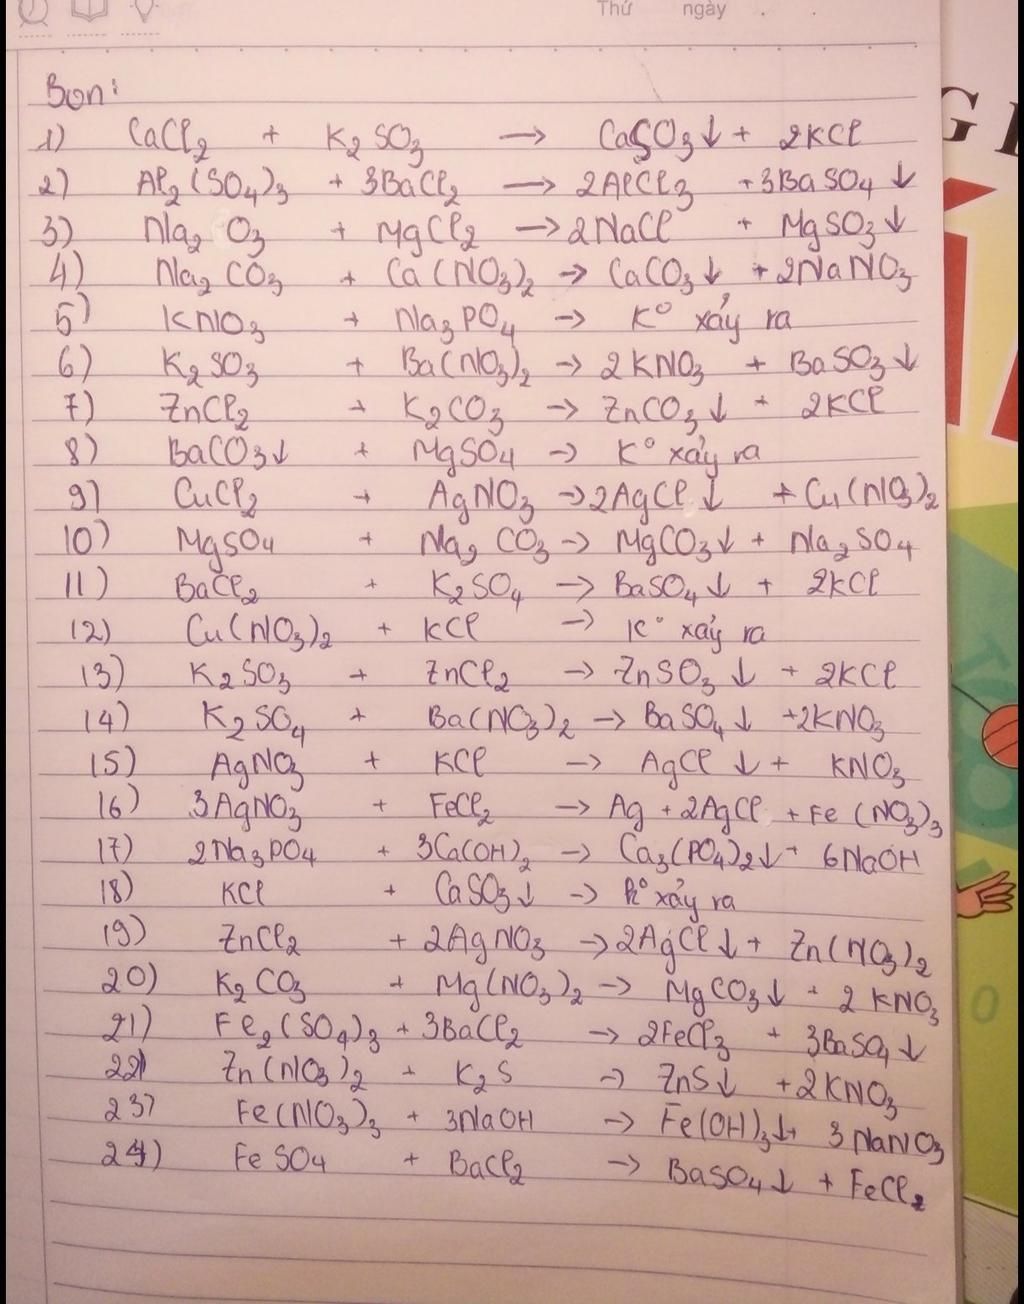 Thứ ngày
Bơn:
1) CaCl2 + K2SO3 → CaSO3↓ + 2KCl
2) Al2(SO4)3 + 3BaCl2 → 2AlCl3 + 3BaSO4↓
3) Na2 O3 + MgCl2 → 2NaCl + MgSO3↓
4) Na2CO3 + Ca(NO3)2 → CaCO3↓ + 2NaNO3
5) KNO3 + Na3PO4 → K° xảy ra
6) K2SO3 + Ba(NO3)2 → 2KNO3 + BaSO3↓
7) ZnCl2 + K2CO3 → ZnCO3↓ + 2KCl
8) BaCO3↓ + MgSO4 → K° xảy ra
9) CuCl2 + AgNO3 → 2AgCl↓ + Cu(NO3)2
10) MgSO4 + Na2CO3 → MgCO3↓ + Na2SO4
11) BaCl2 + K2SO4 → BaSO4↓ + 2KCl
12) Cu(NO3)2 + KCl → K° xảy ra
13) K2SO3 + ZnCl2 → ZnSO3↓ + 2KCl
14) K2SO4 + Ba(NO3)2 → BaSO4↓ + 2KNO3
15) AgNO3 + KCl → AgCl↓ + KNO3
16) 3AgNO3 + FeCl2 → Ag + 2AgCl + Fe(NO3)3
17) 2Na3PO4 + 3Ca(OH)2 → Ca3(PO4)2↓ + 6NaOH
18) KCl + CaSO3↓ → K° xảy ra
19) ZnCl2 + 2AgNO3 → 2AgCl↓ + Zn(NO3)2
20) K2CO3 + Mg(NO3)2 → MgCO3↓ + 2KNO3
21) Fe2(SO4)3 + 3BaCl2 → 2FeCl3 + 3BaSO4↓
22) Zn(NO3)2 + K2S → ZnS↓ + 2KNO3
23) Fe(NO3)3 + 3NaOH → Fe(OH)3↓ + 3NaNO3
24) FeSO4 + BaCl2 → BaSO4↓ + FeCl2